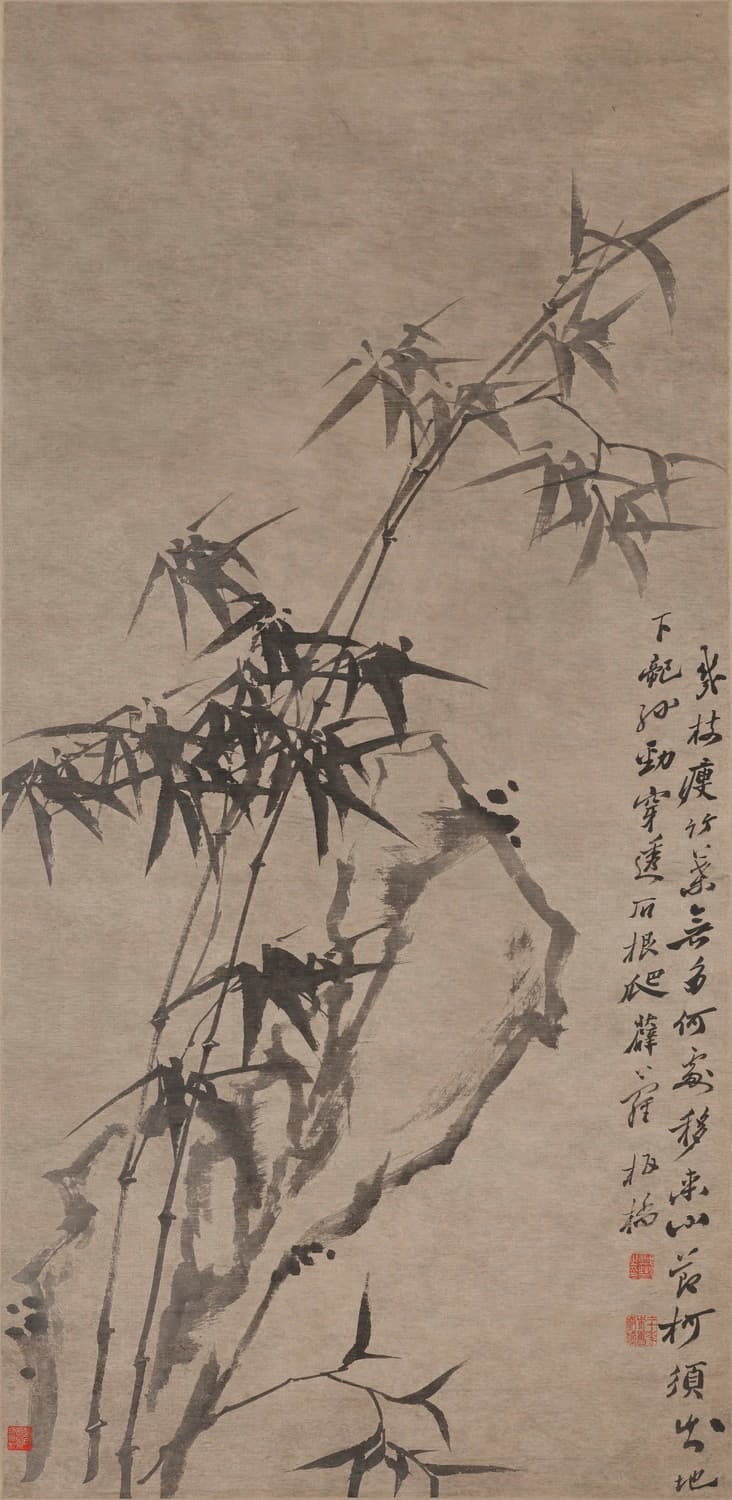 幾枝瘦竹葉無多何處移來小節柯須知地
下龍孫勁穿透石根爬薜蘿 板橋